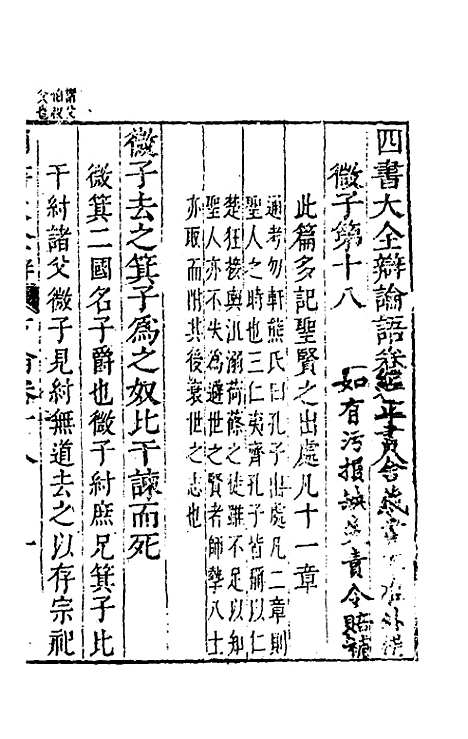 四書大全辯論語卷
微子第十八
如有污損缺失責令賠補
此篇多記聖賢之出處凡十一章
通考勿軒熊氏曰孔子出處凡二章則
聖人之時也三仁夷齊孔子皆稱以仁
楚狂接輿沮溺荷蓧之徒雖不足以知
聖人亦不失為避世之賢者師摯八士
亦取而附其後衰世之志也
微子去之箕子為之奴比干諫而死
微箕二國名子爵也微子紂庶兄箕子比
干紂諸父微子見紂無道去之以存宗祀